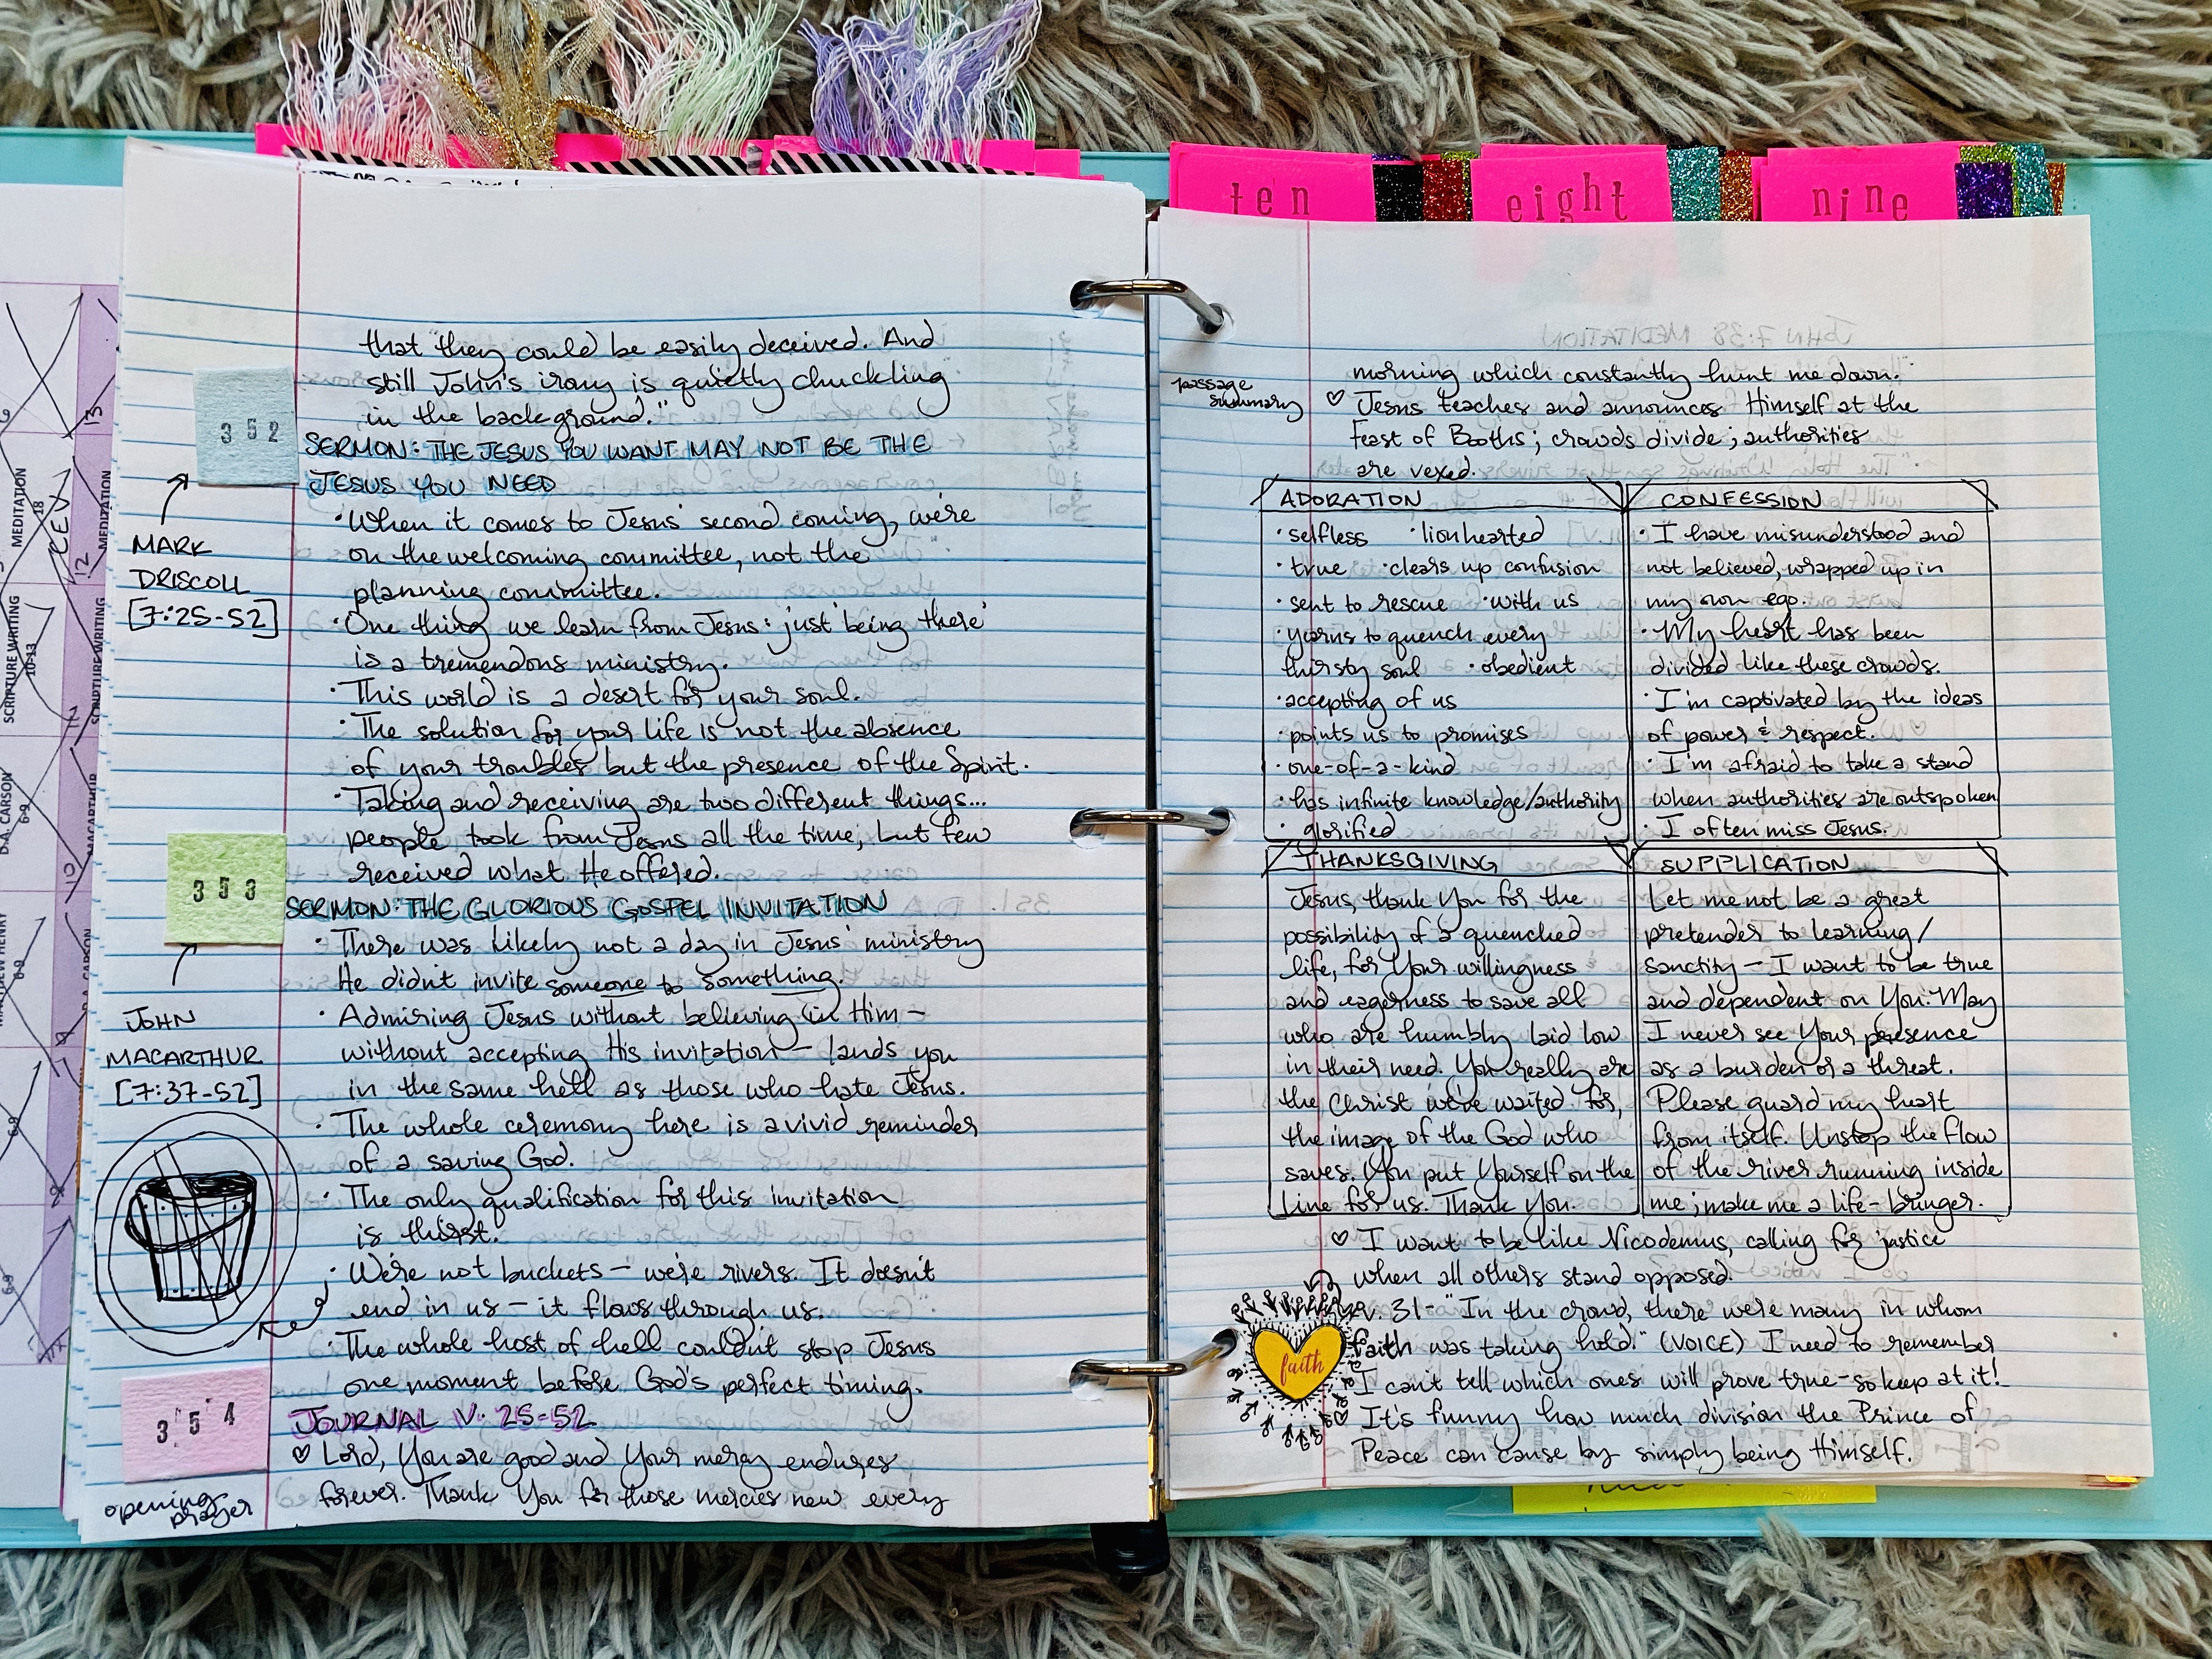 ten
eight
nine
that "they could be easily deceived. And
still John's irony is quietly chuckling
in the background."
352
SERMON: THE JESUS YOU WANT MAY NOT BE THE
JESUS YOU NEED
MARK
DRISCOLL
[7:25-52]
· When it comes to Jesus' second coming, we're
on the welcoming committee, not the
planning committee.
· One thing we learn from Jesus: just 'being there'
is a tremendous ministry.
· This world is a desert for your soul.
· The solution for your life is not the absence
of your troubles but the presence of the Spirit.
· Taking and receiving are two different things...
people took from Jesus all the time, but few
received what He offered.
353
SERMON: THE GLORIOUS GOSPEL INVITATION
JOHN
MACARTHUR
[7:37-52]
· There was likely not a day in Jesus' ministry
He didn't invite someone to something.
· Admiring Jesus without believing in Him –
without accepting His invitation – lands you
in the same hell as those who hate Jesus.
· The whole ceremony here is a vivid reminder
of a saving God.
· The only qualification for this invitation
is thirst.
· We're not buckets – we're rivers. It doesn't
end in us – it flows through us.
· The whole host of hell couldn't stop Jesus
one moment before God's perfect timing.
354
JOURNAL V. 25-52
opening
prayer
♡ Lord, You are good and Your mercy endures
forever. Thank You for those mercies new every
morning which constantly hunt me down.
passage
summary
♡ Jesus teaches and announces Himself at the
Feast of Booths; crowds divide; authorities
are vexed.
ADORATION
· selfless · lionhearted
· true · clears up confusion
· sent to rescue · with us
· yearns to quench every
thirsty soul · obedient
· accepting of us
· points us to promises
· one-of-a-kind
· has infinite knowledge/authority
· glorified
CONFESSION
· I have misunderstood and
not believed, wrapped up in
my own ego.
· My heart has been
divided like these crowds.
· I'm captivated by the ideas
of power & respect.
· I'm afraid to take a stand
when authorities are outspoken
· I often miss Jesus.
THANKSGIVING
Jesus, thank You for the
possibility of a quenched
life, for Your willingness
and eagerness to save all
who are humbly laid low
in their need. You really are
the Christ we've waited for,
the image of the God who
saves. You put Yourself on the
line for us. Thank You.
SUPPLICATION
Let me not be a great
pretender to learning/
sanctity – I want to be true
and dependent on You. May
I never see Your presence
as a burden or a threat.
Please guard my heart
from itself. Unstop the flow
of the river running inside
me; make me a life-bringer.
♡ I want to be like Nicodemus, calling for justice
when all others stand opposed.
v. 31- "In the crowd, there were many in whom
faith was taking hold." (VOICE) I need to remember
I can't tell which ones will prove true-so keep at it!
faith
♡ It's funny how much division the Prince of
Peace can cause by simply being Himself.
MEDITATION
18
CEV
13
MEDITATION
12
SCRIPTURE WRITING
10-13
SCRIPTURE WRITING
11
D.A. CARSON
6-9
MACARTHUR
10
MATTHEW HENRY
6-9
D.A. CARSON
9
6-9
8
6-9